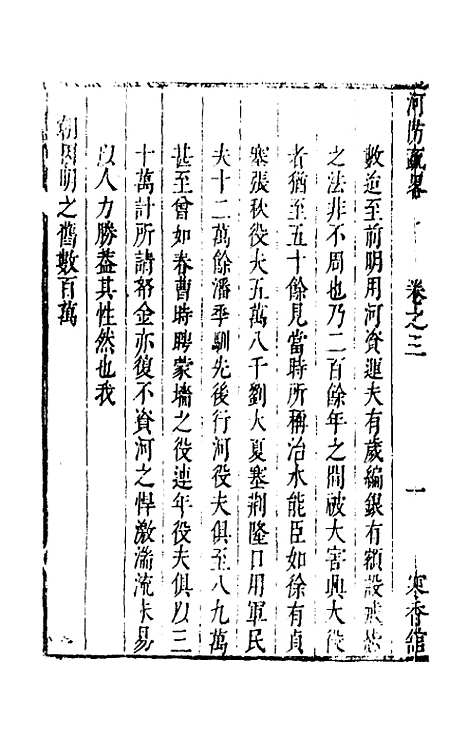 河防疏畧 卷之三 一 寒香館
數迨至前明用河資運夫有歲編銀有額設戒㤀
之法非不周也乃二百餘年之間被大害興大役
者猶至五十餘見當時所稱治水能臣如徐有貞
塞張秋役夫五萬八千劉大夏塞荊隆口用軍民
夫十二萬餘潘季馴先後行河役夫俱至八九萬
甚至曾如春曹時聘蒙墻之役連年役夫俱以三
十萬計所請帑金亦復不資河之悍激湍流未易
以人力勝葢其性然也我
朝因明之舊數百萬